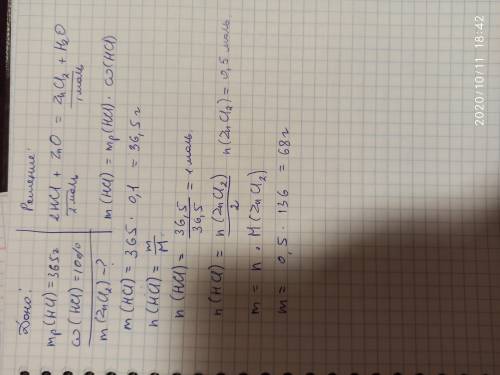 Дано:
mp(HCl) = 365г
ω(HCl) = 10%
m(ZnCl₂) - ?
Решение:
2HCl + ZnO = ZnCl₂ + H₂O
2моль 1моль
m(HCl) = mp(HCl) · ω(HCl)
m(HCl) = 365 · 0,1 = 36,5г
n(HCl) = m/M
n(HCl) = 36,5/36,5 = 1 моль
n(HCl) = n(ZnCl₂)/2 n(ZnCl₂) = 0,5 моль
m = n · M(ZnCl₂)
m = 0,5 · 136 = 68г
2020/10/11 18:42